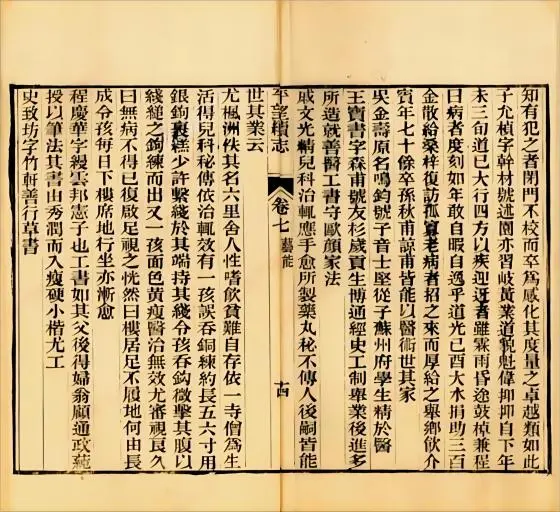 知有犯之者閉門不校而卒爲感化其度量之卓越類如此
子允楨字幹材號述園亦習岐黃業道貌魁偉抑抑自下年
未三旬道已大行四方以疾迎迓者雖霖雨昏途鼓棹兼程
曰病者度刻如年敢自暇自逸乎道光己酉大水捐助三百
金散給桑梓復訪孤寡老病者招之來而厚給之舉鄉飲介
賓年七十餘卒孫秋甫諒甫皆能以醫術世其家
吳金壽原名鳴鈞號子音士堅從子蘇州府學生精於醫
王寶書字森甫號友杉歲貢生博通經史工制舉業後進多
所造就善醫工書守歐顏家法
戚文光精兒科治輒應手愈所製藥丸秘不傳人後嗣皆能
平望續志
卷七 藝能
十四
世其業云
尤楓洲佚其名六里舍人性嗜飲貧難自存依一寺僧爲生
活得兒科秘傳依治輒效有一孩誤吞銅練約長五六寸用
銀鉤裹糕少許繫綫於其端持其綫令孩吞鉤微擊其腹以
綫縋之鉤練而出又一孩面色黃瘦醫治無效尤審視良久
曰無病不得已復啟足視之恍然曰樓居足不履地何由長
成令孩每日下樓席地行坐亦漸愈
程慶華字縵雲邦憲子也工書如其父後得婦翁顧通政蒓
授以筆法其書由秀潤而入瘦硬小楷尤工
史致坊字竹軒善行草書